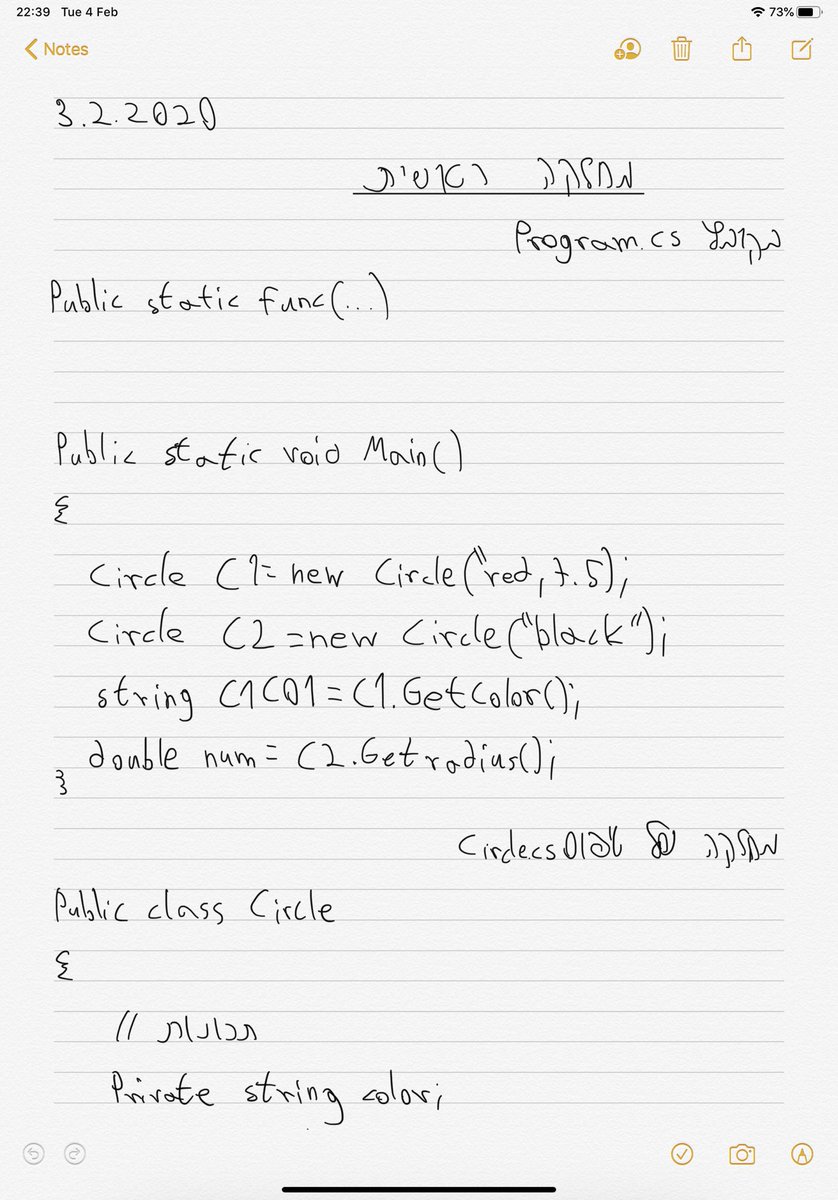 22:39 Tue 4 Feb 73%
Notes
3.2.2020
מחלקה ראשית
בקובץ Program.cs
Public static func(...)
Public static void Main()
{
Circle C1= new Circle("red, 7.5);
Circle C2 =new Circle("black");
string C1C01 = C1.GetColor();
double num = C2.Getradius();
}
מחלקה של טיפוס Circle.cs
Public class Circle
{
// תכונות
Private string color;